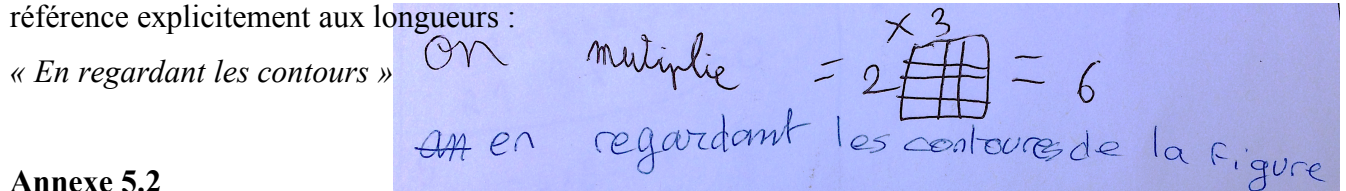 référence explicitement aux longueurs :
« En regardant les contours »
On mutiplie = 2 × 3 = 6
an en regardant les contoures de la figure
Annexe 5.2